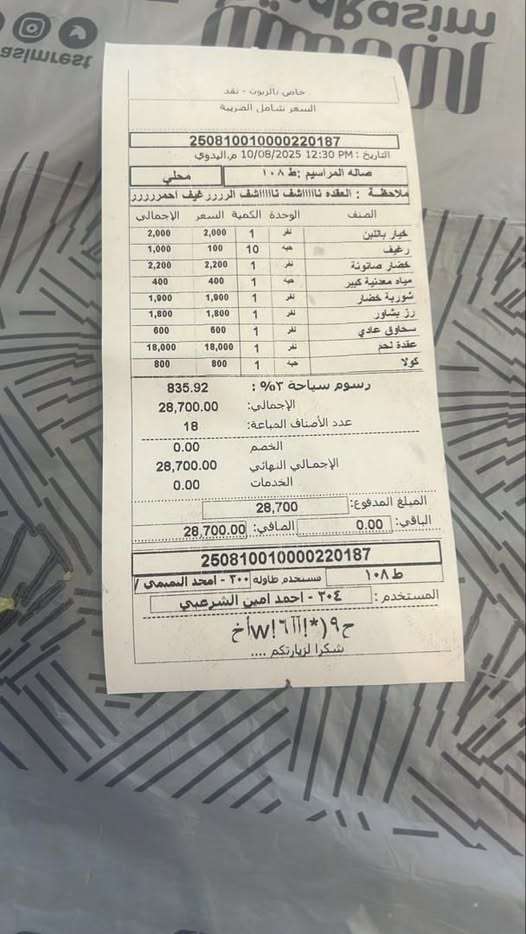 asimrest
alRasim
خاص بالزبون - نقد
السعر شامل الضريبة
250810010000220187
التاريخ : 10/08/2025 12:30 PM م,البدوي
صاله المراسيم :ط ١٠٨ محلي
ملاحظة : العقده نااااشف نااااشف الرررر غيف احمررررر
الصنف الوحدة الكمية السعر الإجمالي
خيار باللبن نفر 1 2,000 2,000
رغيف حبه 10 100 1,000
خضار صانونة نفر 1 2,200 2,200
مياه معدنية كبير حبه 1 400 400
شوربة خضار نفر 1 1,900 1,900
رز بشاور نفر 1 1,800 1,800
سحاوق عادي نفر 1 600 600
عقدة لحم نفر 1 18,000 18,000
كولا حبه 1 800 800
رسوم سياحة ٣% : 835.92
الإجمالي: 28,700.00
عدد الأصناف المباعة: 18
الخصم 0.00
الإجمالي النهائي 28,700.00
الخدمات 0.00
المبلغ المدفوع: 28,700
الباقي: 0.00 الصافي: 28,700.00
250810010000220187
ط ١٠٨ مستخدم طاولة ٢٠٠ - امجد النصيمي /
المستخدم : ٢٠٤ - احمد امين الشرعبي
شكرا لزيارتكم ....